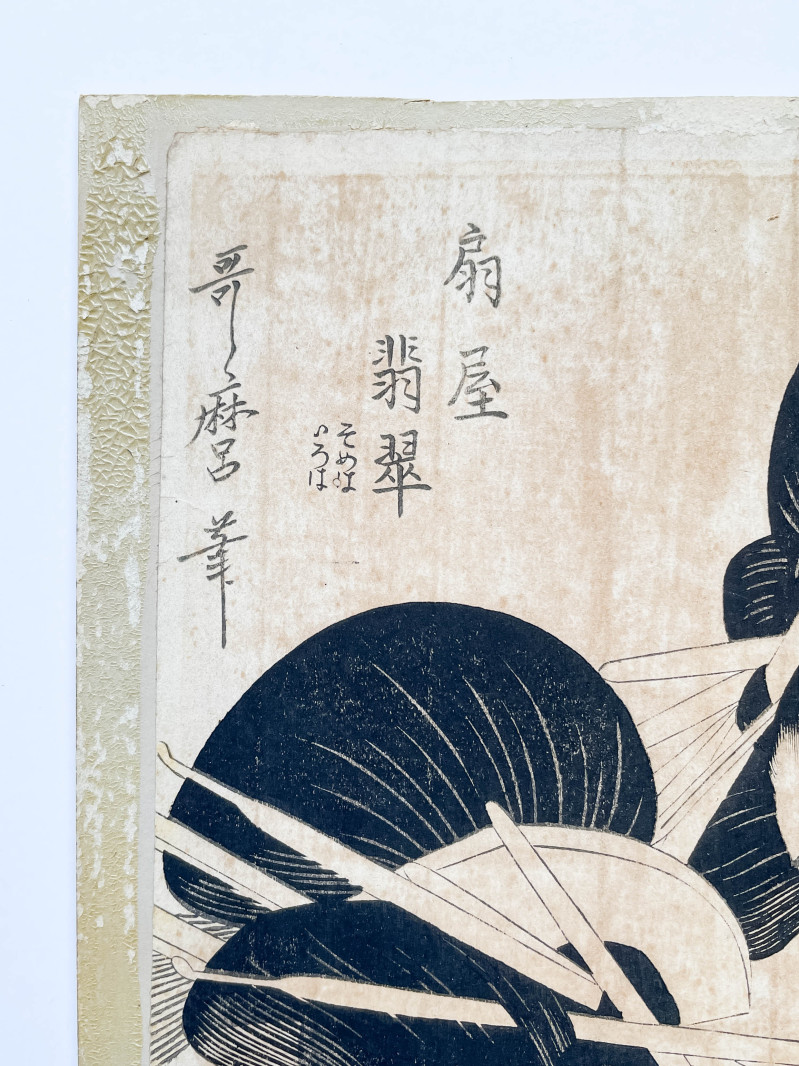 扇屋
翡翠
そめは
いろは
哥麿筆